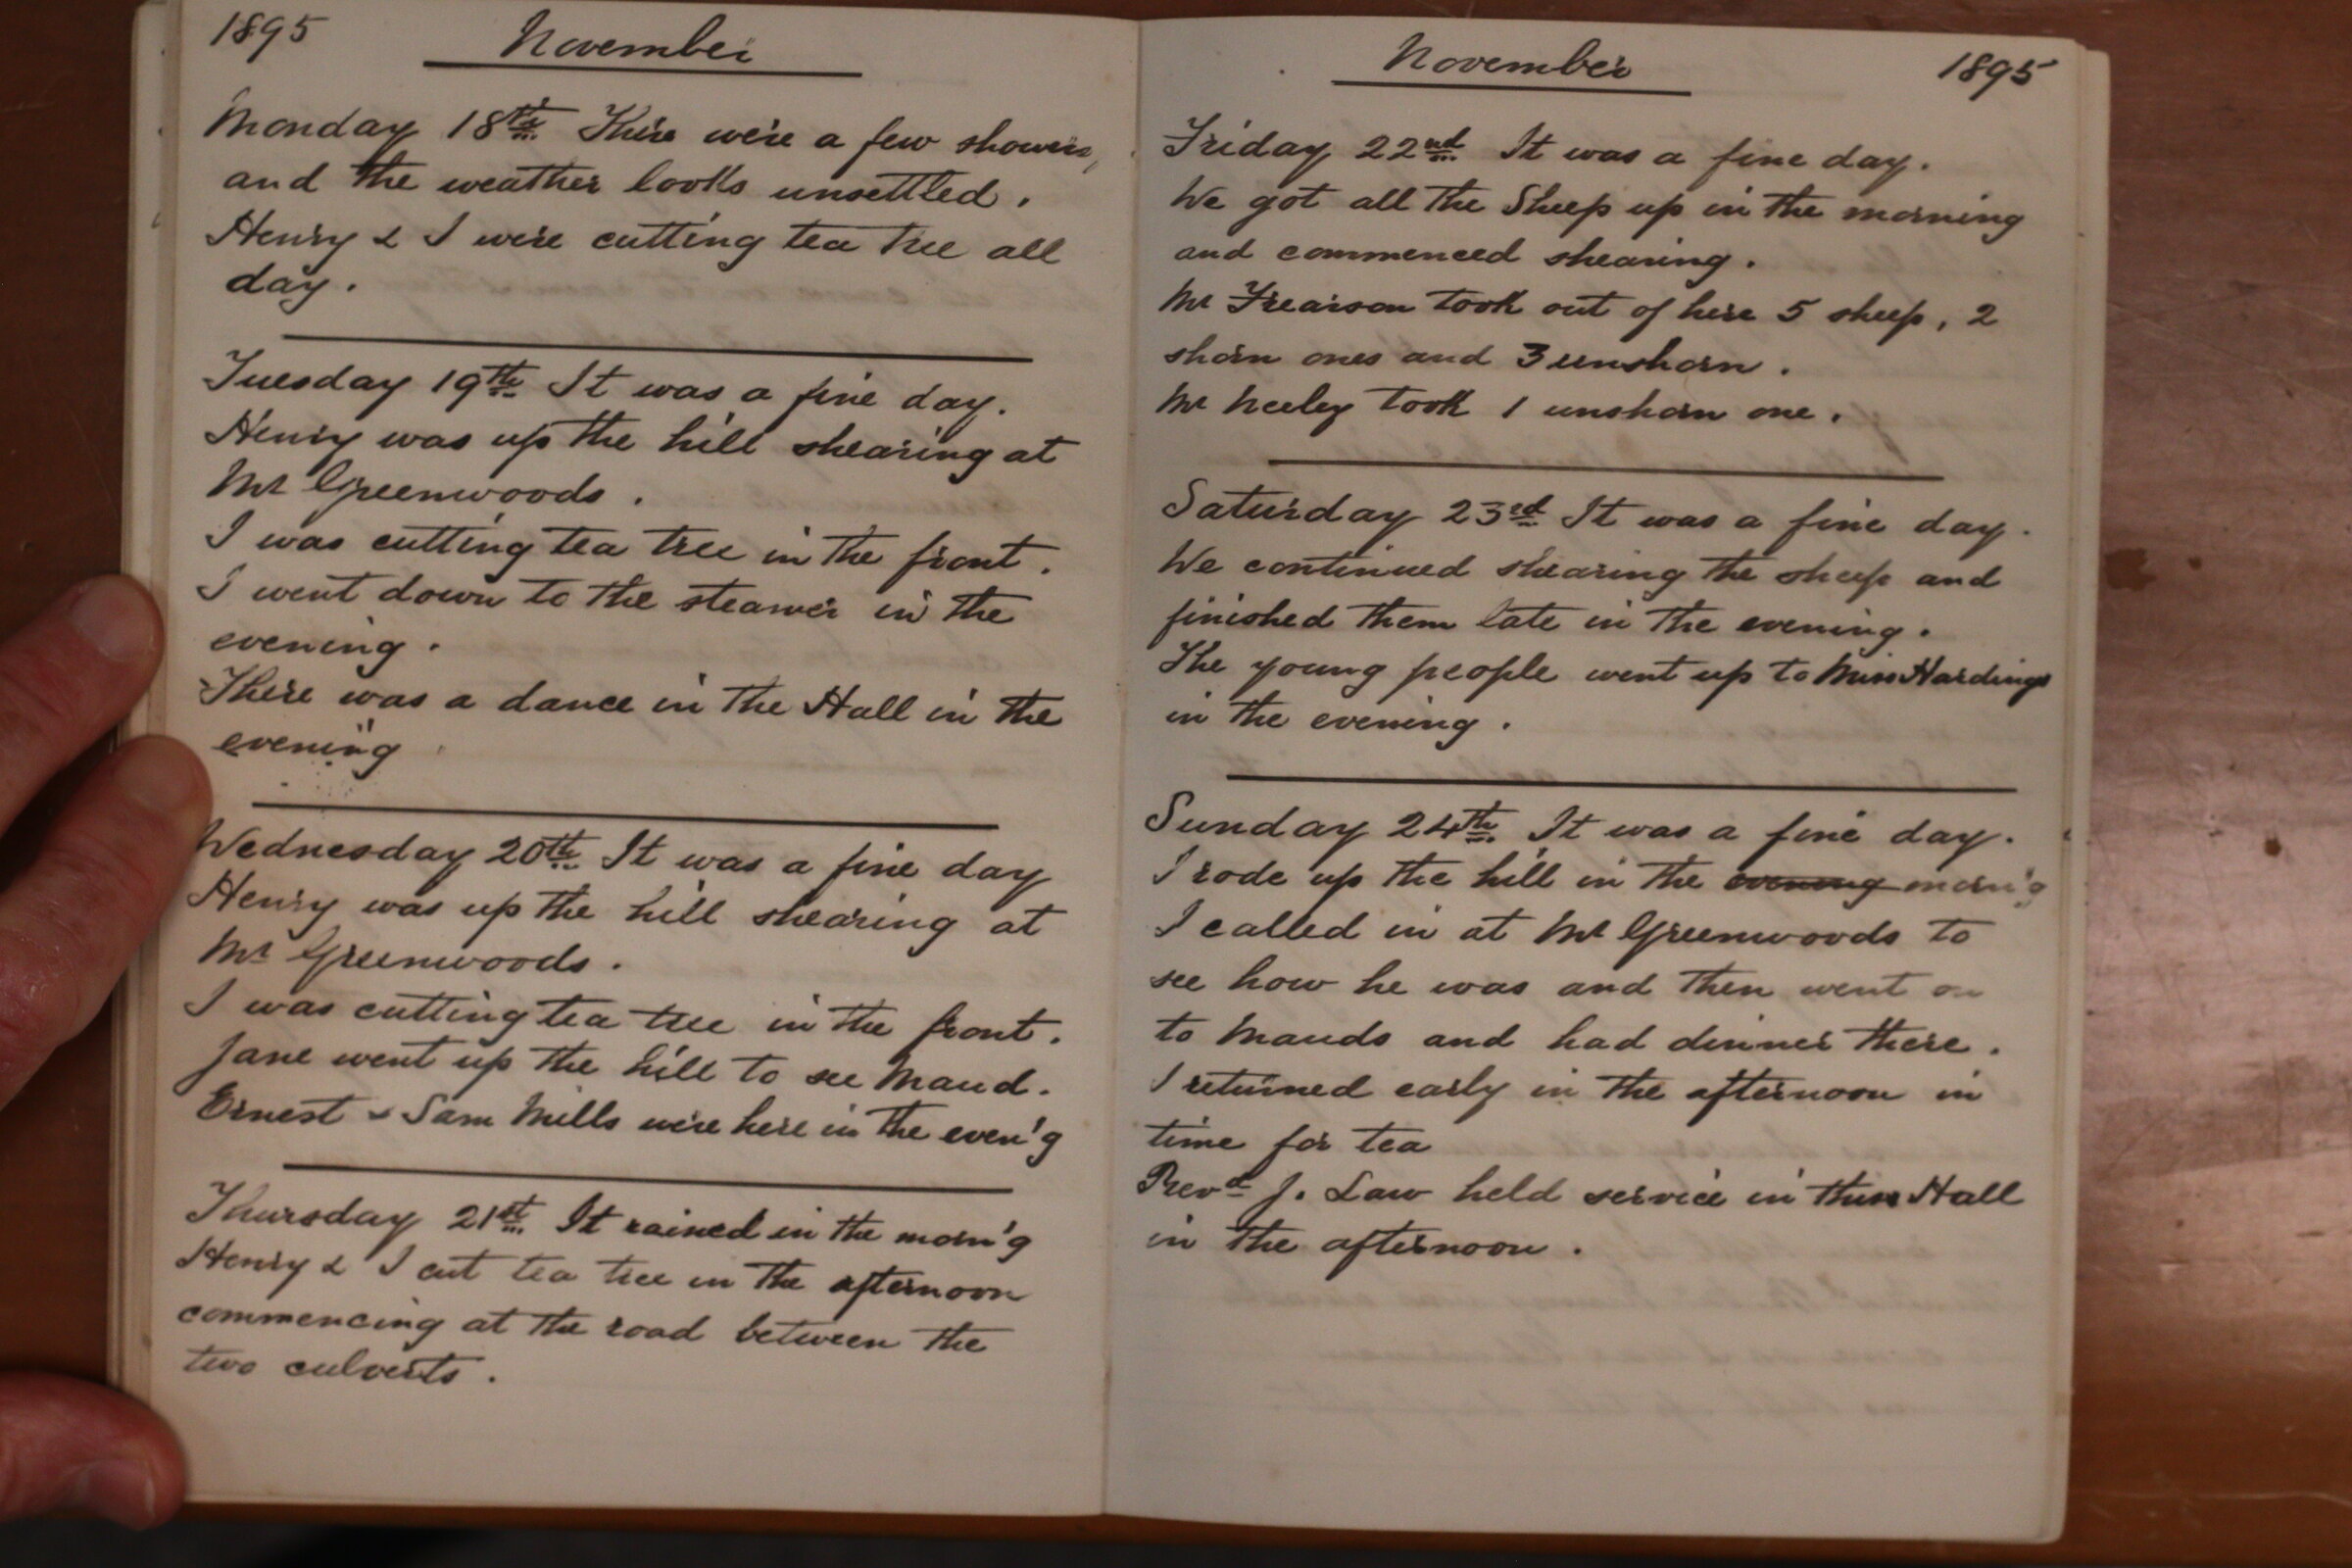 1895 November
Monday 18th There were a few showers,
and the weather looks unsettled.
Henry & I were cutting tea tree all
day.
Tuesday 19th It was a fine day.
Henry was up the hill shearing at
Mr Greenwoods.
I was cutting tea tree in the front.
I went down to the steamer in the
evening.
There was a dance in the Hall in the
evening
Wednesday 20th It was a fine day
Henry was up the hill shearing at
Mr Greenwoods.
I was cutting tea tree in the front.
Jane went up the hill to see Maud.
Ernest & Sam Mills were here in the even'g
Thursday 21st It rained in the morn'g
Henry & I cut tea tree in the afternoon
commencing at the road between the
two culverts.
November 1895
Friday 22nd It was a fine day.
We got all the Sheep up in the morning
and commenced shearing.
Mr Frearson took out of here 5 sheep, 2
shorn ones and 3 unshorn.
Mr Neeley took 1 unshorn one.
Saturday 23rd It was a fine day.
We continued shearing the sheep and
finished them late in the evening.
The young people went up to Miss Hardings
in the evening.
Sunday 24th It was a fine day.
I rode up the hill in the evening morn'g
I called in at Mr Greenwoods to
see how he was and then went on
to Mauds and had dinner there.
I returned early in the afternoon in
time for tea
Revd J. Law held service in Hall
in the afternoon.